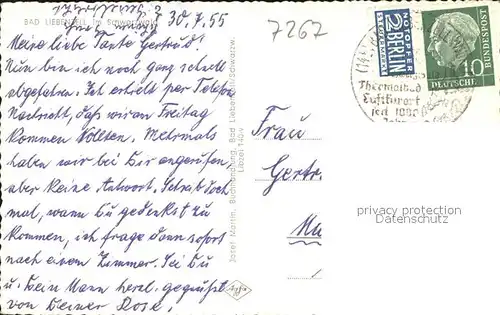 BAD LIEBENZELL im Schwarzwald
30.7.55
7267
Meine liebe Tante Gertrud!
Nun bin ich noch ganz schnell
abgefahren. Ich erhielt per Telefon
Nachricht, daß wir am Freitag
kommen sollten. Mehrmals
haben wir bei Dir angerufen,
aber keine Antwort. Schreib doch
mal, wann Du gedenkst zu
kommen, ich frage dann sofort
nach einem Zimmer. Sei Du
u. Dein Mann herzl. gegrüßt
von Deiner Rose,
Josef Martin, Buchhandlung, Bad Liebenzell/Schwarzw.
NOTOPFER
2 BERLIN
STEUERMARKE
DEUTSCHE
BUNDESPOST
10
Thermalbad
Luftkurort
seit 1880
Frau
Gertr
privacy protection
DATASERVICE